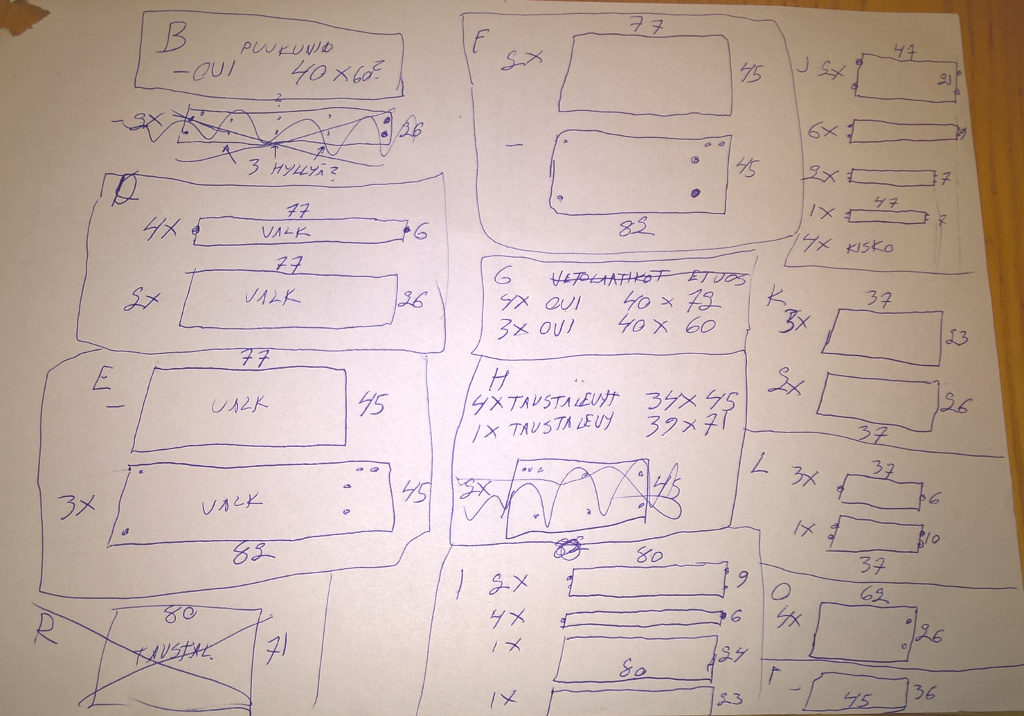 B
PUUKUNIO
- OVI 40 x 60?
- 2X ? 26
3 HYLLYÄ?
D
77
4X VALK 6
77
2X VALK 26
E
77
- VALK 45
3X VALK 45
82
R
80
TAUSTAL 71
F
77
2X 45
- 45
82
G VETOLAATIKOT ETUOS
4X OVI 40 x 72
3X OVI 40 x 60
H
4X TAUSTALEVYT 34 x 45
1X TAUSTALEVY 39 x 71
2X 45
80
I 2X 9
4X 6
1X 24
80
1X 23
47
J 2X 21
6X 9
2X 7
47
1X 7
4X KISKO
K 37
3X 23
2X 26
37
L 37
3X 6
1X 10
37
O 62
4X 26
- 45 36